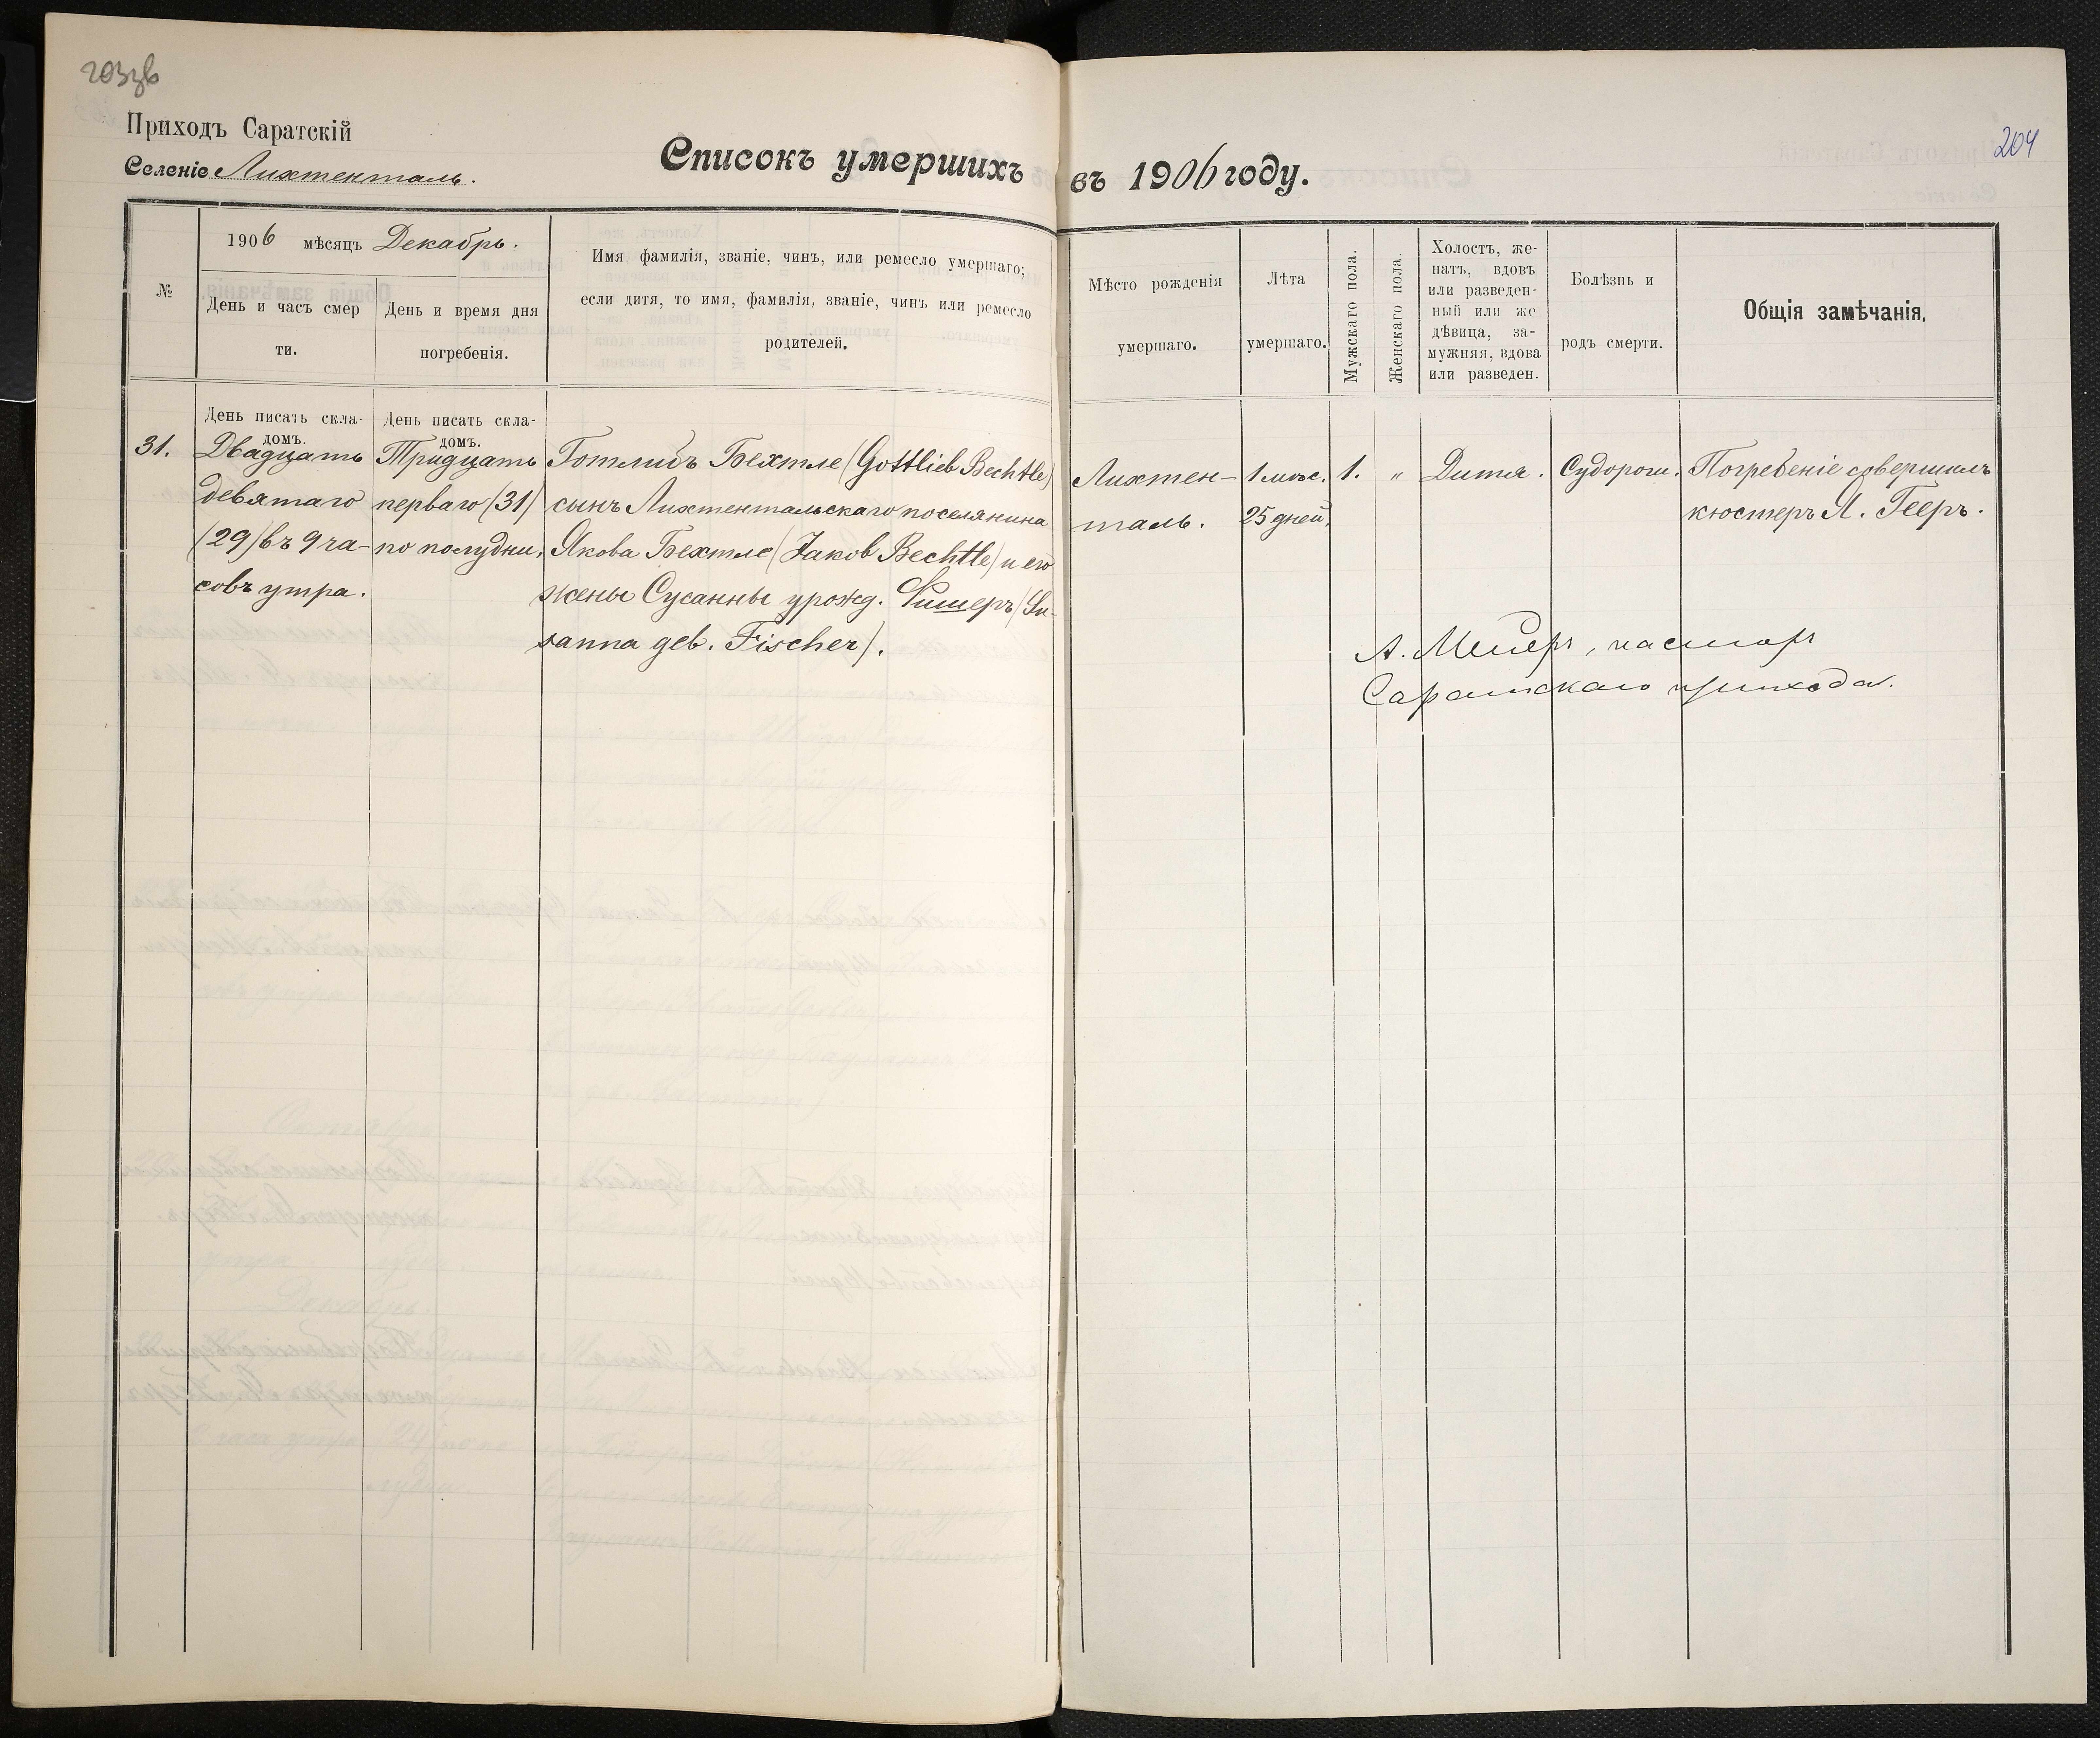 203зв
204
Приходъ Саратскій
Селеніе Лихтенталь.
Списокъ умершихъ въ 1906 году.
№
1906 мѣсяцъ Декабрь.
День и часъ смер
ти.
День и время дня
погребенія.
Имя фамилія, званіе, чинъ, или ремесло умершаго;
если дитя, то имя, фамилія, званіе, чинъ или ремесло
родителей.
Мѣсто рожденія
умершаго.
Лѣта
умершаго.
Мужскаго пола.
Женскаго пола.
Холостъ, же-
натъ, вдовъ
или разведен-
ный или же
дѣвица, за-
мужняя, вдова
или разведен.
Болѣзнь и
родъ смерти.
Общія замѣчанія.
31.
День писать скла-
домъ.
Двадцать
девятаго
(29) въ 9 ча-
совъ утра.
День писать скла-
домъ.
Тридцать
перваго (31)
по полудни.
Готлибъ Бехтле (Gottlieb Bechtle)
сынъ Лихтентальскаго поселянина
Якова Бехтле (Jakob Bechtle) и его
жены Сусанны урожд. Фишеръ (Su-
sanna geb. Fischer).
Лихтен-
таль.
1 мѣс.
25 дней.
1.
„
Дитя.
Судороги.
Погребеніе совершилъ
кюстеръ Л. Гееръ.
А. Мейеръ, пасторъ
Саратскаго прихода.